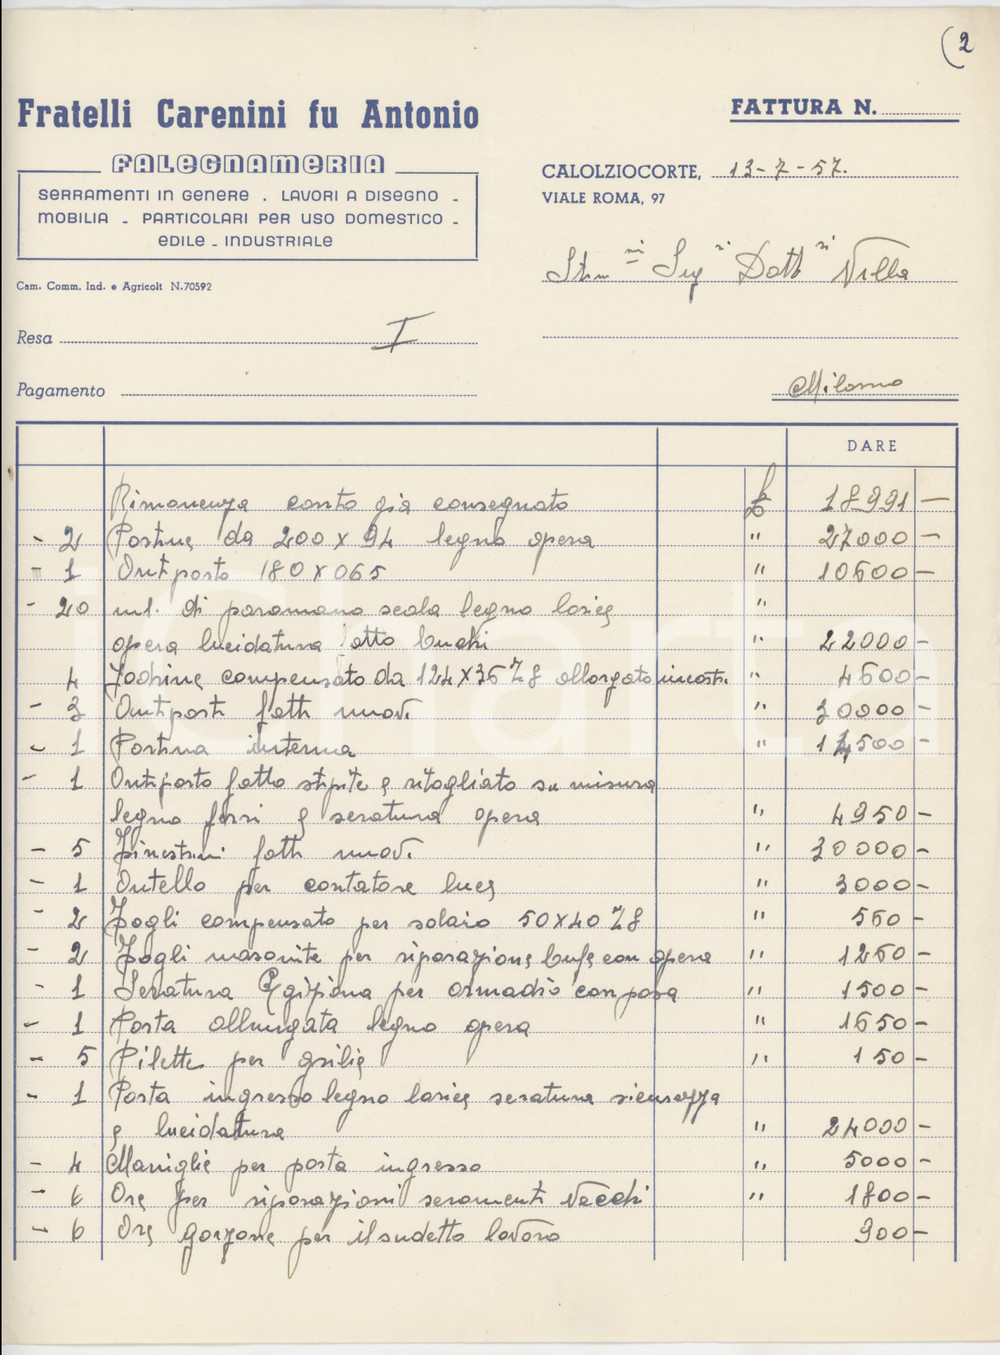 (2
Fratelli Carenini fu Antonio
FALEGNAMERIA
SERRAMENTI IN GENERE . LAVORI A DISEGNO -
MOBILIA - PARTICOLARI PER USO DOMESTICO -
EDILE - INDUSTRIALE
Cam. Comm. Ind. e Agricolt N.70592
FATTURA N.
CALOLZIOCORTE, 13-7-57.
VIALE ROMA, 97
Sig Dott Villa
Resa I
Pagamento
Milano
DARE
Rimanenza conto già consegnato £ 18991 —
- 2 Portine da 200 x 94 legno opera " 27000 —
1 Antiporto 180 x 065 " 10600 —
- 20 ml. di paramano scala legno larice "
opera lucidatura fatto buchi " 22000 -
4 compensato da 124x36 Z 8 allargato " 4600 -
- 3 Antiporti fatti nuovi " 30000 -
- 1 Portina interna " 14500 -
- 1 Antiporto fatto stipite e ritagliato su misura
legno ferri e seratura opera " 4950 -
- 5 Finestrini fatti nuovi " 30000 -
- 1 Antello per contatore luce " 3000 -
- 2 Fogli compensato per solaio 50x40 Z 8 " 560 -
- 2 Fogli masonite per riparazione con opera " 1260 -
- 1 Seratura per armadio con posa " 1500 -
- 1 Porta allungata legno opera " 1650 -
- 5 Pilette per grilie " 150 -
- 1 Porta ingresso legno larice seratura sicurezza
e lucidatura " 24000 -
- 4 Maniglie per porta ingresso " 5000 -
- 6 Ore per riparazioni seramenti vecchi " 1800 -
- 6 Ore garzone per il sudetto lavoro 900 -